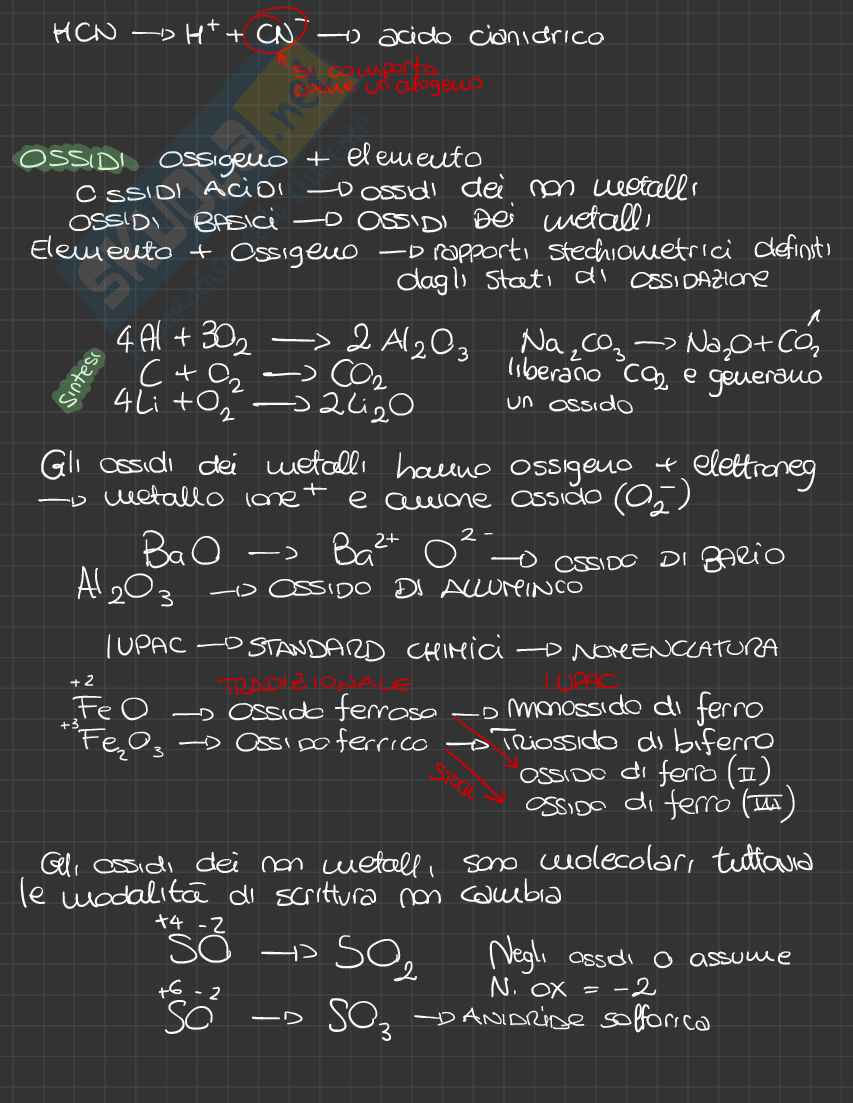 HCN → H⁺ + CN⁻ → acido cianidrico
si comporta
come un alogeno
OSSIDI ossigeno + elemento
OSSIDI ACIDI → ossidi dei non metalli
OSSIDI BASICI → OSSIDI DEI metalli
Elemento + Ossigeno → rapporti stechiometrici definiti
dagli stati di OSSIDAZIONE
Sintesi
4Al + 3O₂ → 2Al₂O₃
C + O₂ → CO₂
4Li + O₂ → 2Li₂O
Na₂CO₃ → Na₂O + CO₂↑
liberano CO₂ e generano
un ossido
Gli ossidi dei metalli hanno ossigeno + elettroneg
→ metallo ione⁺ e anione ossido (O₂⁻)
BaO → Ba²⁺ O²⁻ → OSSIDO DI BARIO
Al₂O₃ → OSSIDO DI ALLUMINCO
IUPAC → STANDARD CHIMICI → NOMENCLATURA
TRADIZIONALE IUPAC
+2
FeO → Ossido ferroso → monossido di ferro
+3
Fe₂O₃ → Ossido ferrico → Triossido di biferro
STOCK
OSSIDO di ferro (II)
OSSIDO di ferro (III)
Gli ossidi dei non metalli sono molecolari, tuttavia
le modalità di scrittura non cambia
+4 -2
SO → SO₂
Negli ossidi O assume
N. OX = -2
+6 -2
SO → SO₃ → ANIDRIDE solforica
skuola.net